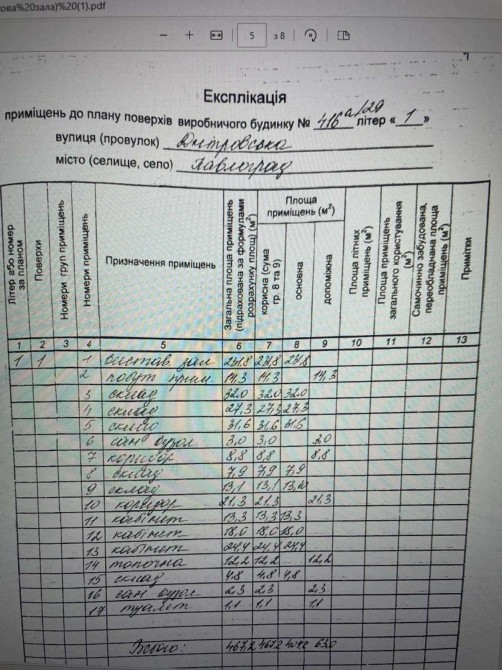 ова%20зала)%20(1).pdf
5 з 8
Експлікація
приміщень до плану поверхів виробничого будинку № 416 а/129 літер « 1 »
вулиця (провулок) Дніпровська
місто (селище, село) Павлоград
Літер або номер за планом
Поверхи
Номери груп приміщень
Номери приміщень
Призначення приміщень
Загальна площа приміщень (підрахована за формулами розрахунку площ) (м²)
Площа приміщень (м²)
корисна (сума гр. 8 та 9)
основна
допоміжна
Площа літних приміщень (м²)
Площа приміщень загального користування (м²)
Самочинно забудована, переобладнана площа приміщень (м²)
Примітки
1 2 3 4 5 6 7 8 9 10 11 12 13
1 1 1 зал
2 побут прим. 14,3 14,3 14,3
3 склад 32,0 32,0 32,0
4 склад 27,3 27,3 27,3
5 склад 31,6 31,6 31,6
6 сан вузол 3,0 3,0 3,0
7 коридор 8,8 8,8 8,8
8 склад 7,9 7,9 7,9
9 склад 13,1 13,1
10 коридор 21,3 21,3 21,3
11 кабінет 13,3 13,3 13,3
12 кабінет 18,0 18,0 18,0
13 кабінет 24,4 24,4 24,4
14 топочна 12,2 12,2 12,2
15 склад 4,8 4,8 4,8
16 сан вузол 2,3 2,3 2,3
17 туалет 1,1 1,1 1,1
Всього: 467,2 467,2 63,0